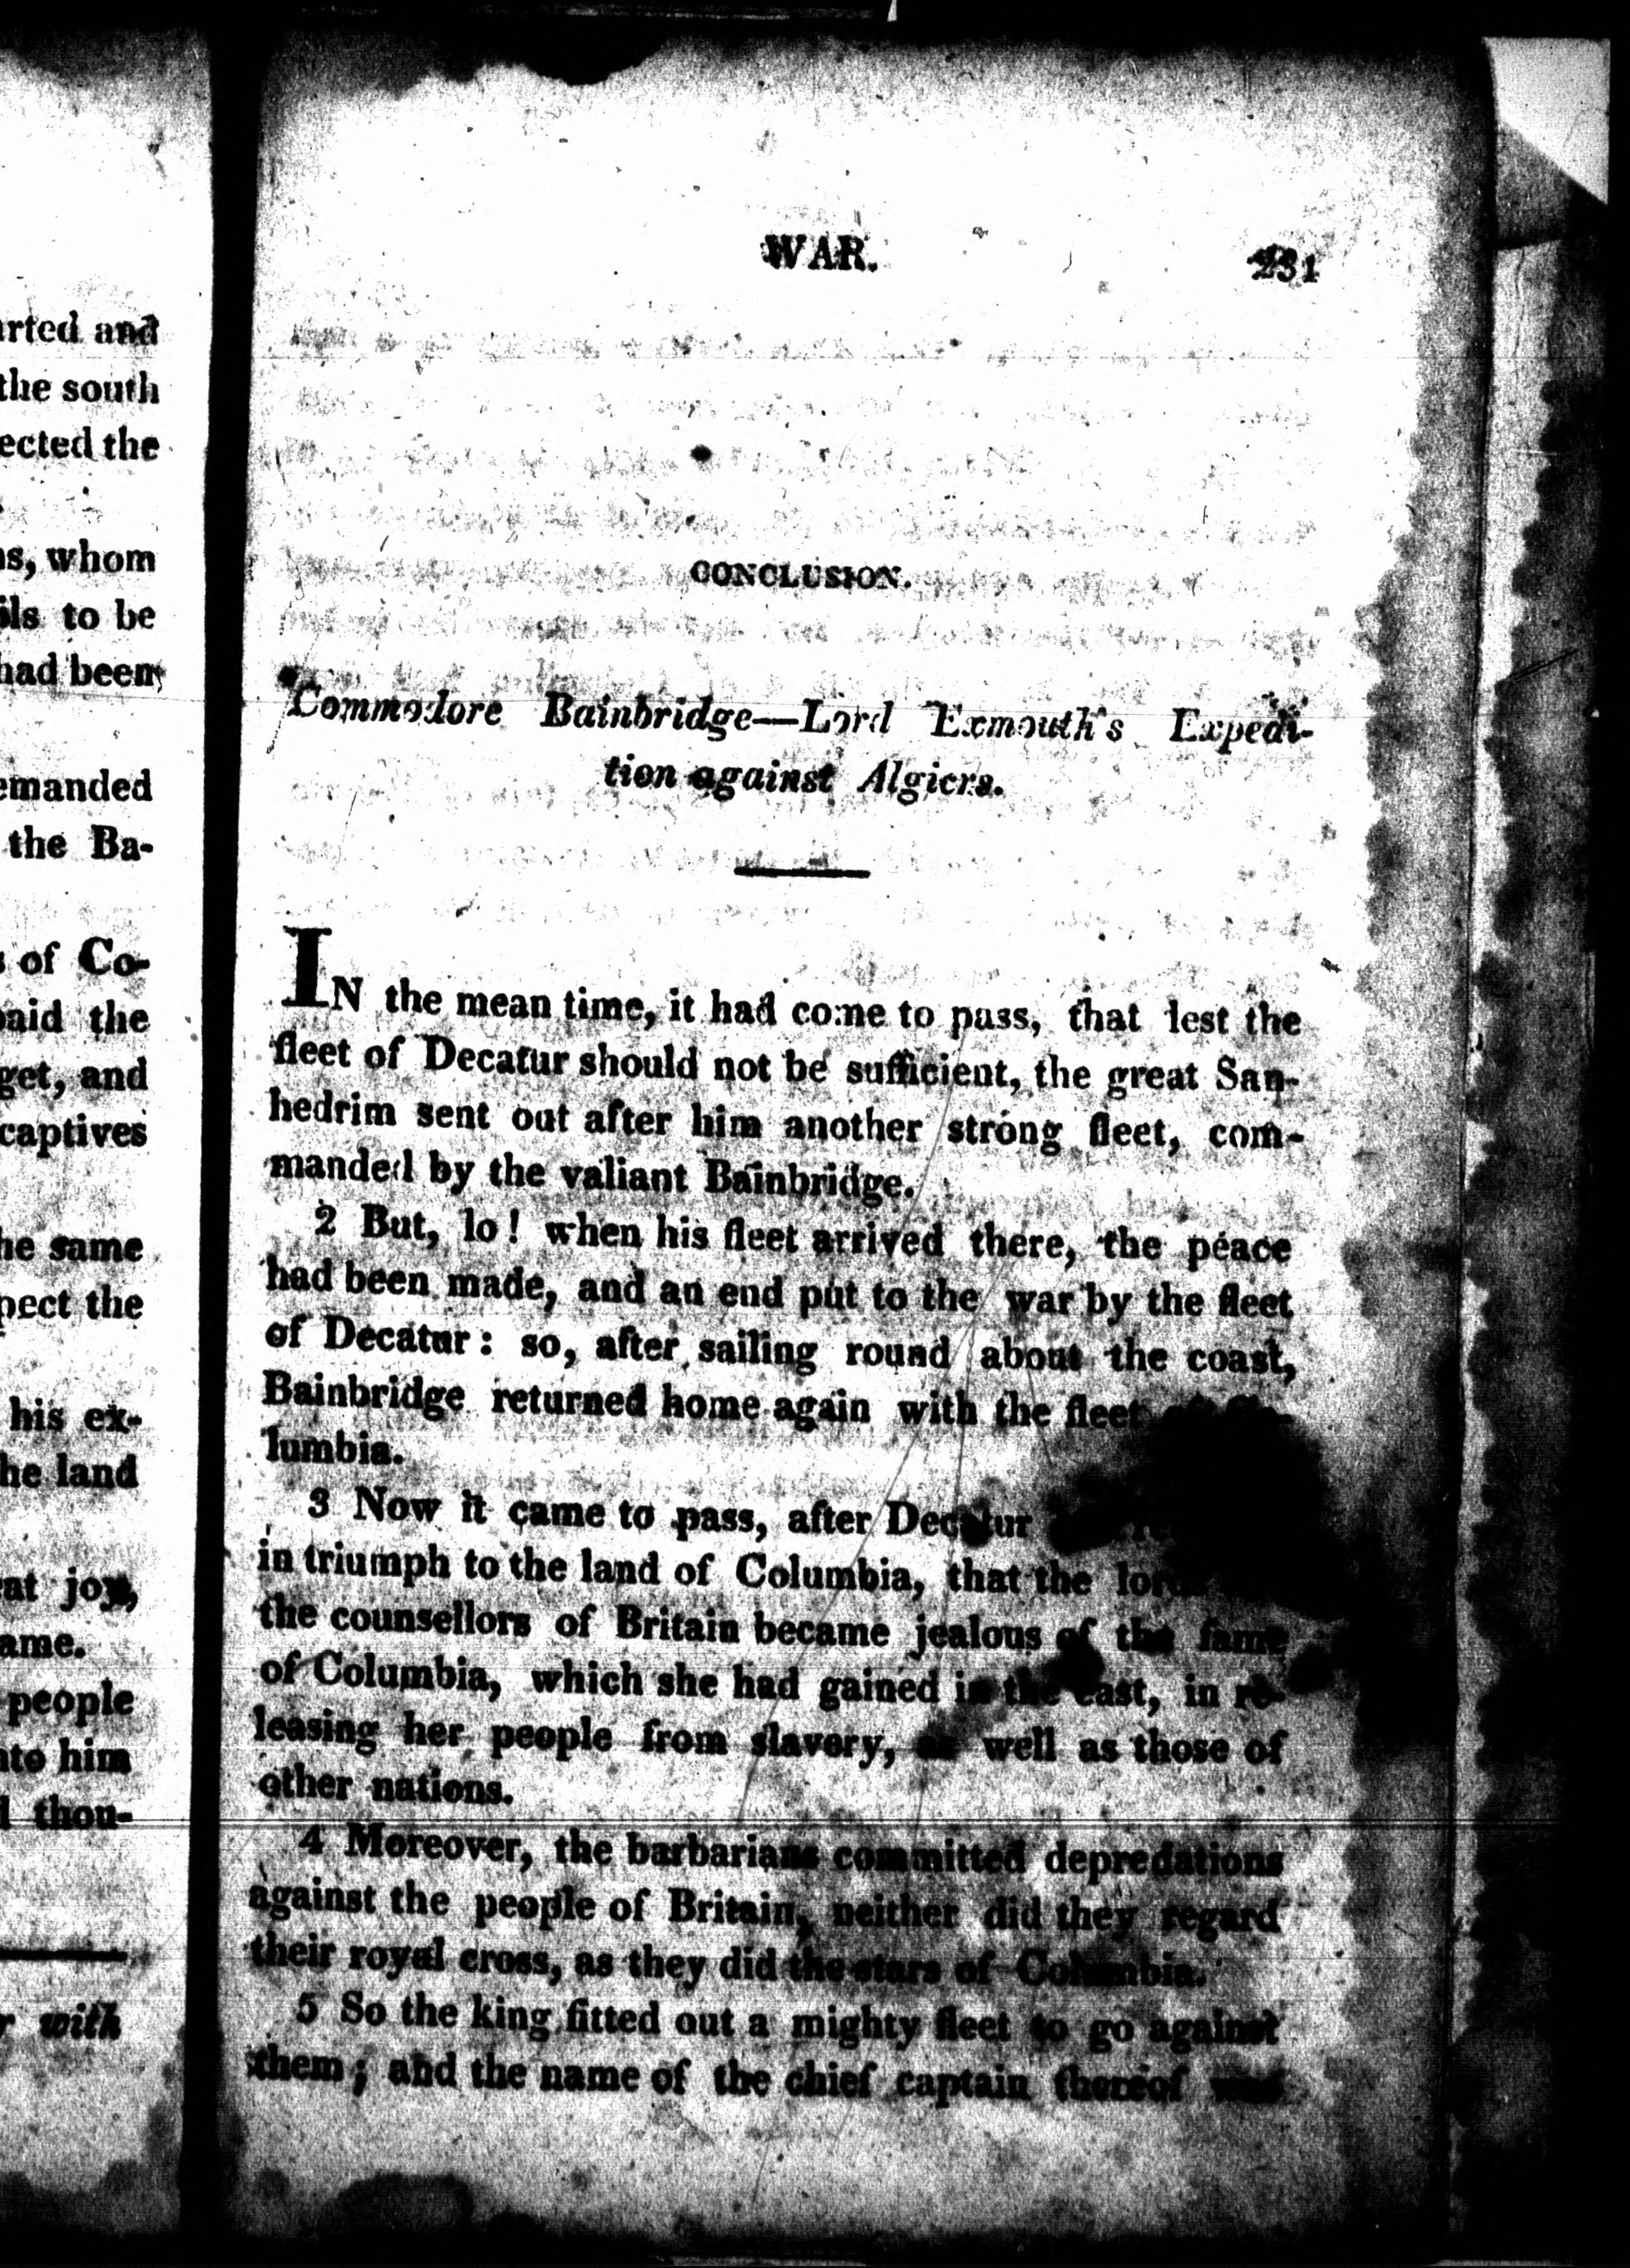 arted and
the south
ected the
s, whom
ils to be
had been
emanded
the Ba-
of Co-
paid the
get, and
captives
he same
pect the
his ex-
he land
at joy,
ame.
people
nto him
thou-
with
WAR. 231
CONCLUSION.
Commodore Bainbridge—Lord Exmouth's Expedi-
tion against Algiers.
IN the mean time, it had come to pass, that lest the
fleet of Decatur should not be sufficient, the great San-
hedrim sent out after him another strong fleet, com-
manded by the valiant Bainbridge.
2 But, lo! when his fleet arrived there, the peace
had been made, and an end put to the war by the fleet
of Decatur: so, after sailing round about the coast,
Bainbridge returned home again with the fleet
lumbia.
3 Now it came to pass, after Decatur
in triumph to the land of Columbia, that the lords
the counsellors of Britain became jealous of the fame
of Columbia, which she had gained in the east, in re-
leasing her people from slavery, as well as those of
other nations.
4 Moreover, the barbarians committed depredations
against the people of Britain, neither did they regard
their royal cross, as they did the stars of Columbia.
5 So the king fitted out a mighty fleet to go against
them; and the name of the chief captain thereof was